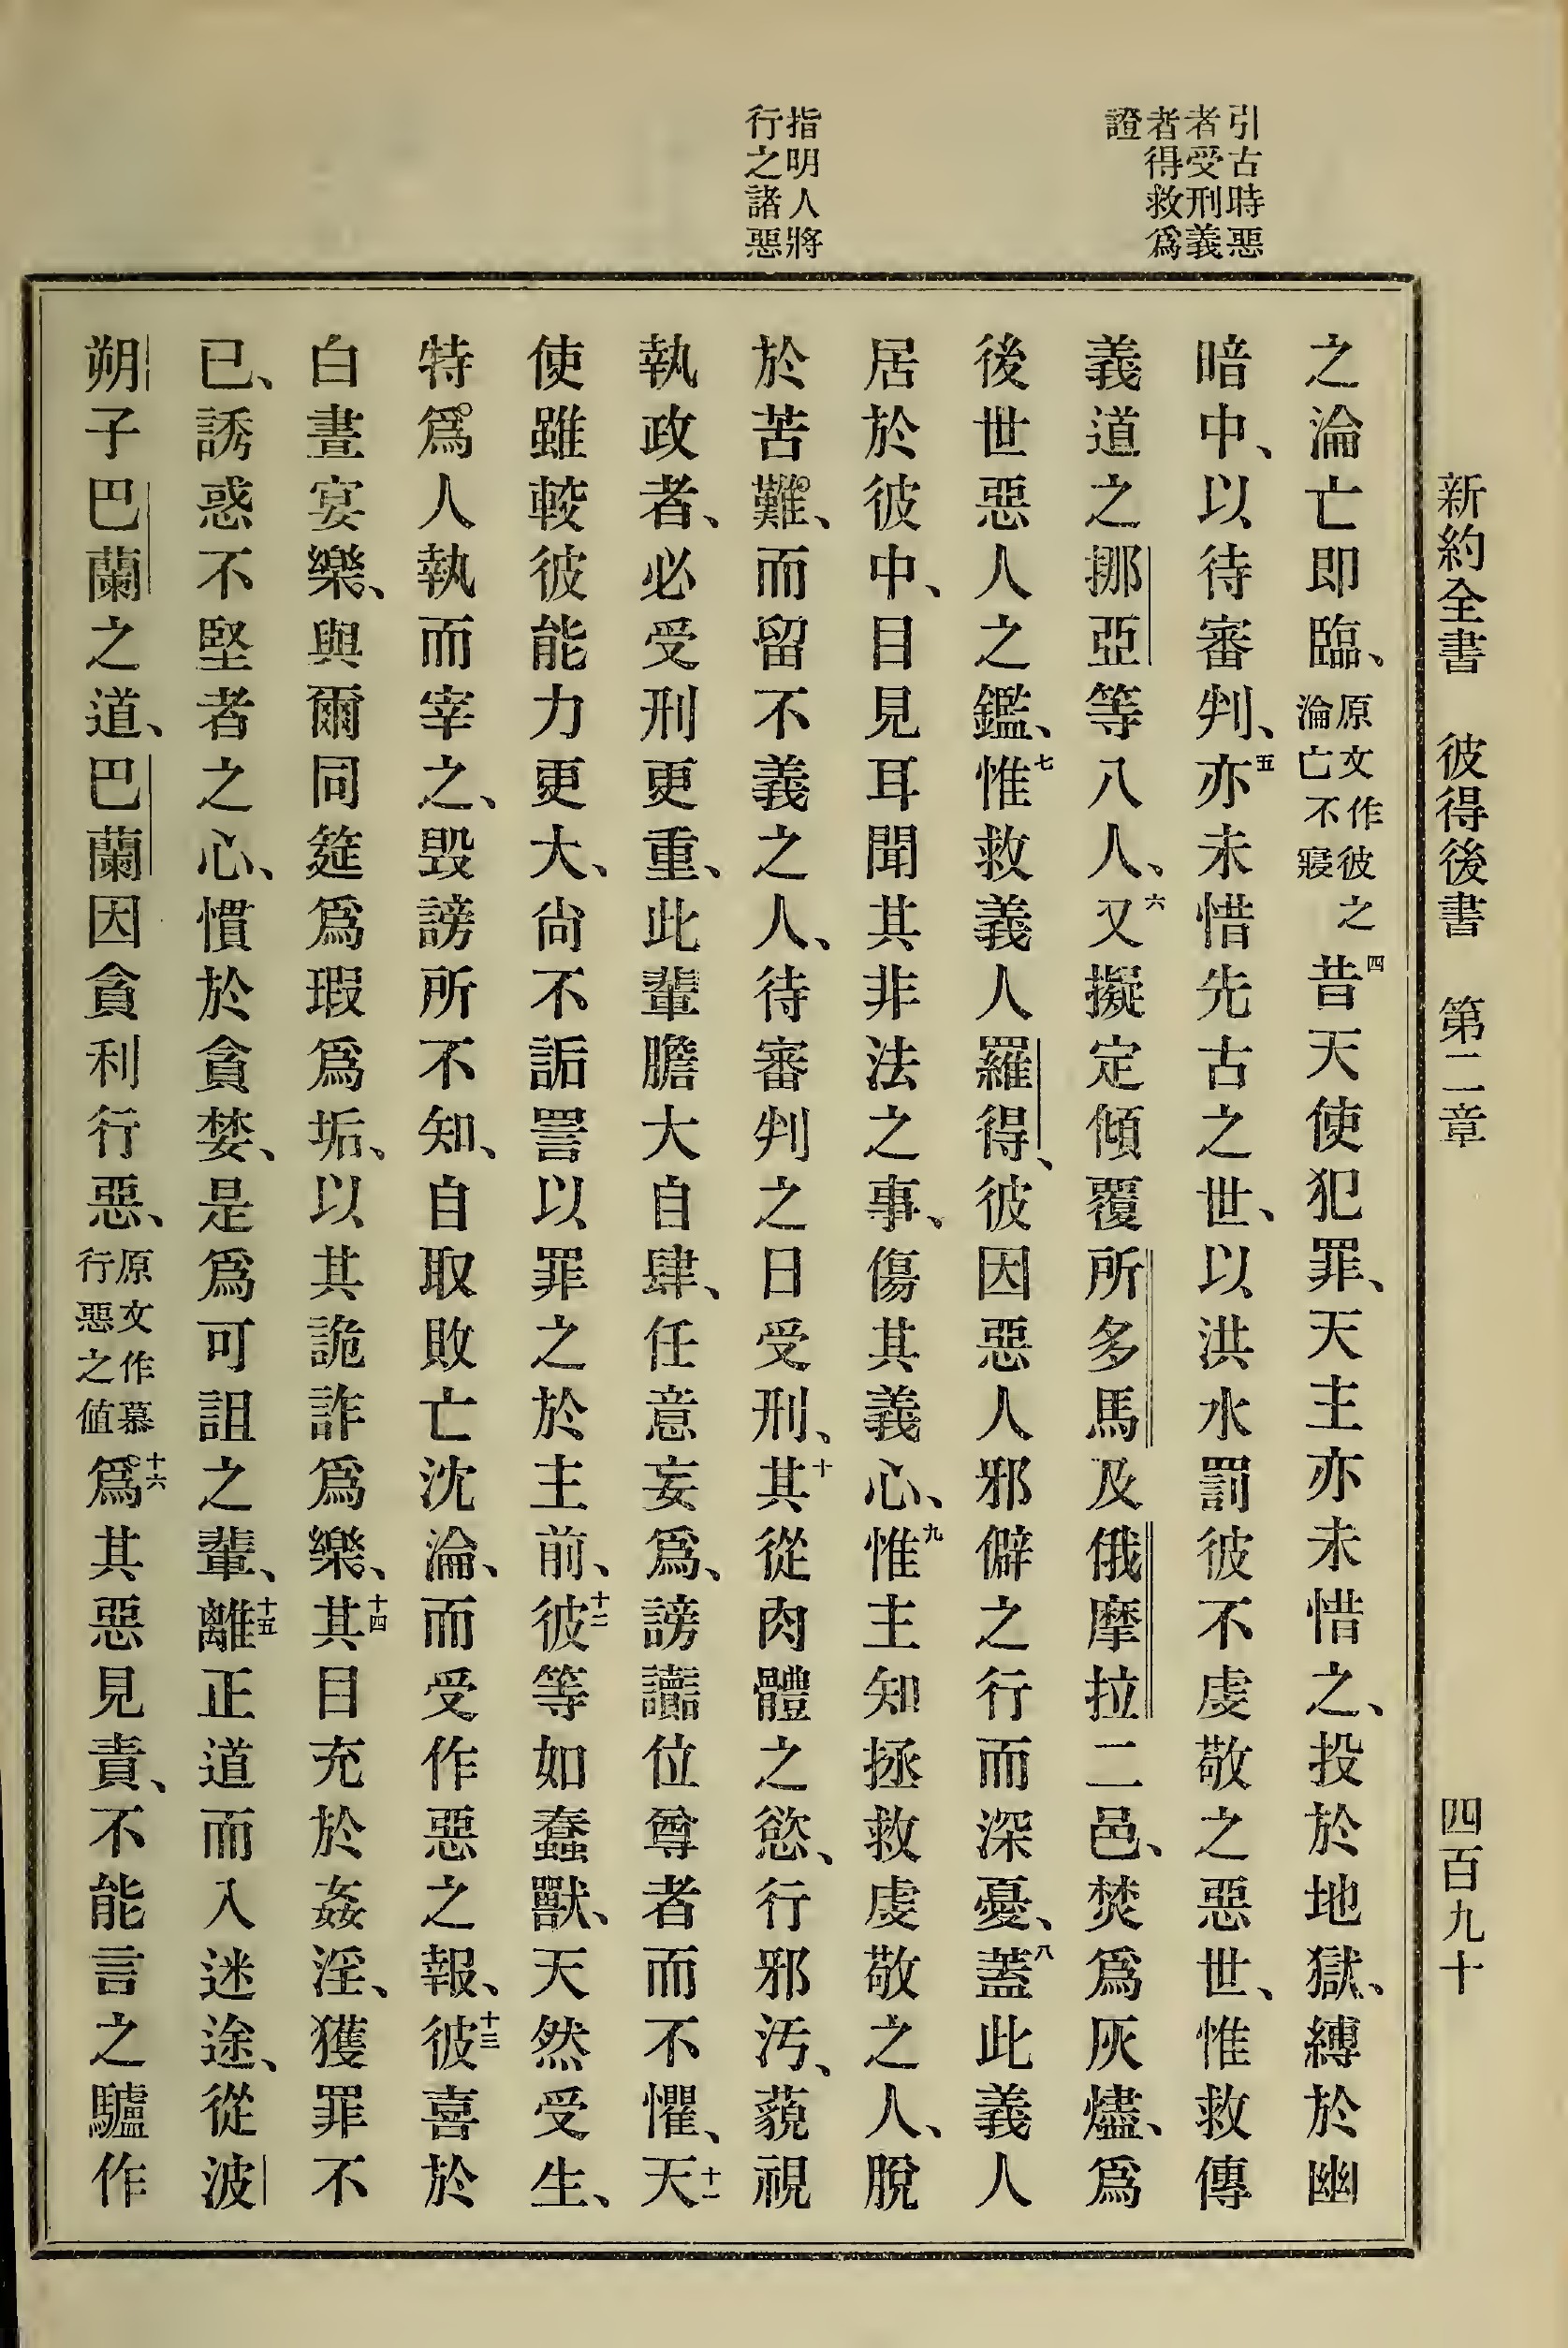 新約全書 彼得後書 第二章 四百九十
引古時惡
者受刑義
者得救爲
證
指明人將
行之諸惡
之淪亡即臨、原文作彼之淪亡不寢四昔天使犯罪、天主亦未惜之、投於地獄、縛於幽
暗中、以待審判、五亦未惜先古之世、以洪水罰彼不虔敬之惡世、惟救傳
義道之挪亞等八人、六又擬定傾覆所多馬及俄摩拉二邑、焚爲灰燼、爲
後世惡人之鑑、七惟救義人羅得、彼因惡人邪僻之行而深憂、八蓋此義人
居於彼中、目見耳聞其非法之事、傷其義心、九惟主知拯救虔敬之人、脫
於苦難、而留不義之人、待審判之日受刑、十其從肉體之慾、行邪汚、藐視
執政者、必受刑更重、此輩膽大自肆、任意妄爲、謗讟位尊者而不懼、十一天
使雖較彼能力更大、尙不詬詈以罪之於主前、十二彼等如蠢獸、天然受生、
特爲人執而宰之、毁謗所不知、自取敗亡沈淪、而受作惡之報、十三彼喜於
白晝宴樂、與爾同筵爲瑕爲垢、以其詭詐爲樂、十四其目充於姦淫、獲罪不
已、誘惑不堅者之心、慣於貪婪、是爲可詛之輩、十五離正道而入迷途、從波
朔子巴蘭之道、巴蘭因貪利行惡、原文作慕行惡之値十六爲其惡見責、不能言之驢作